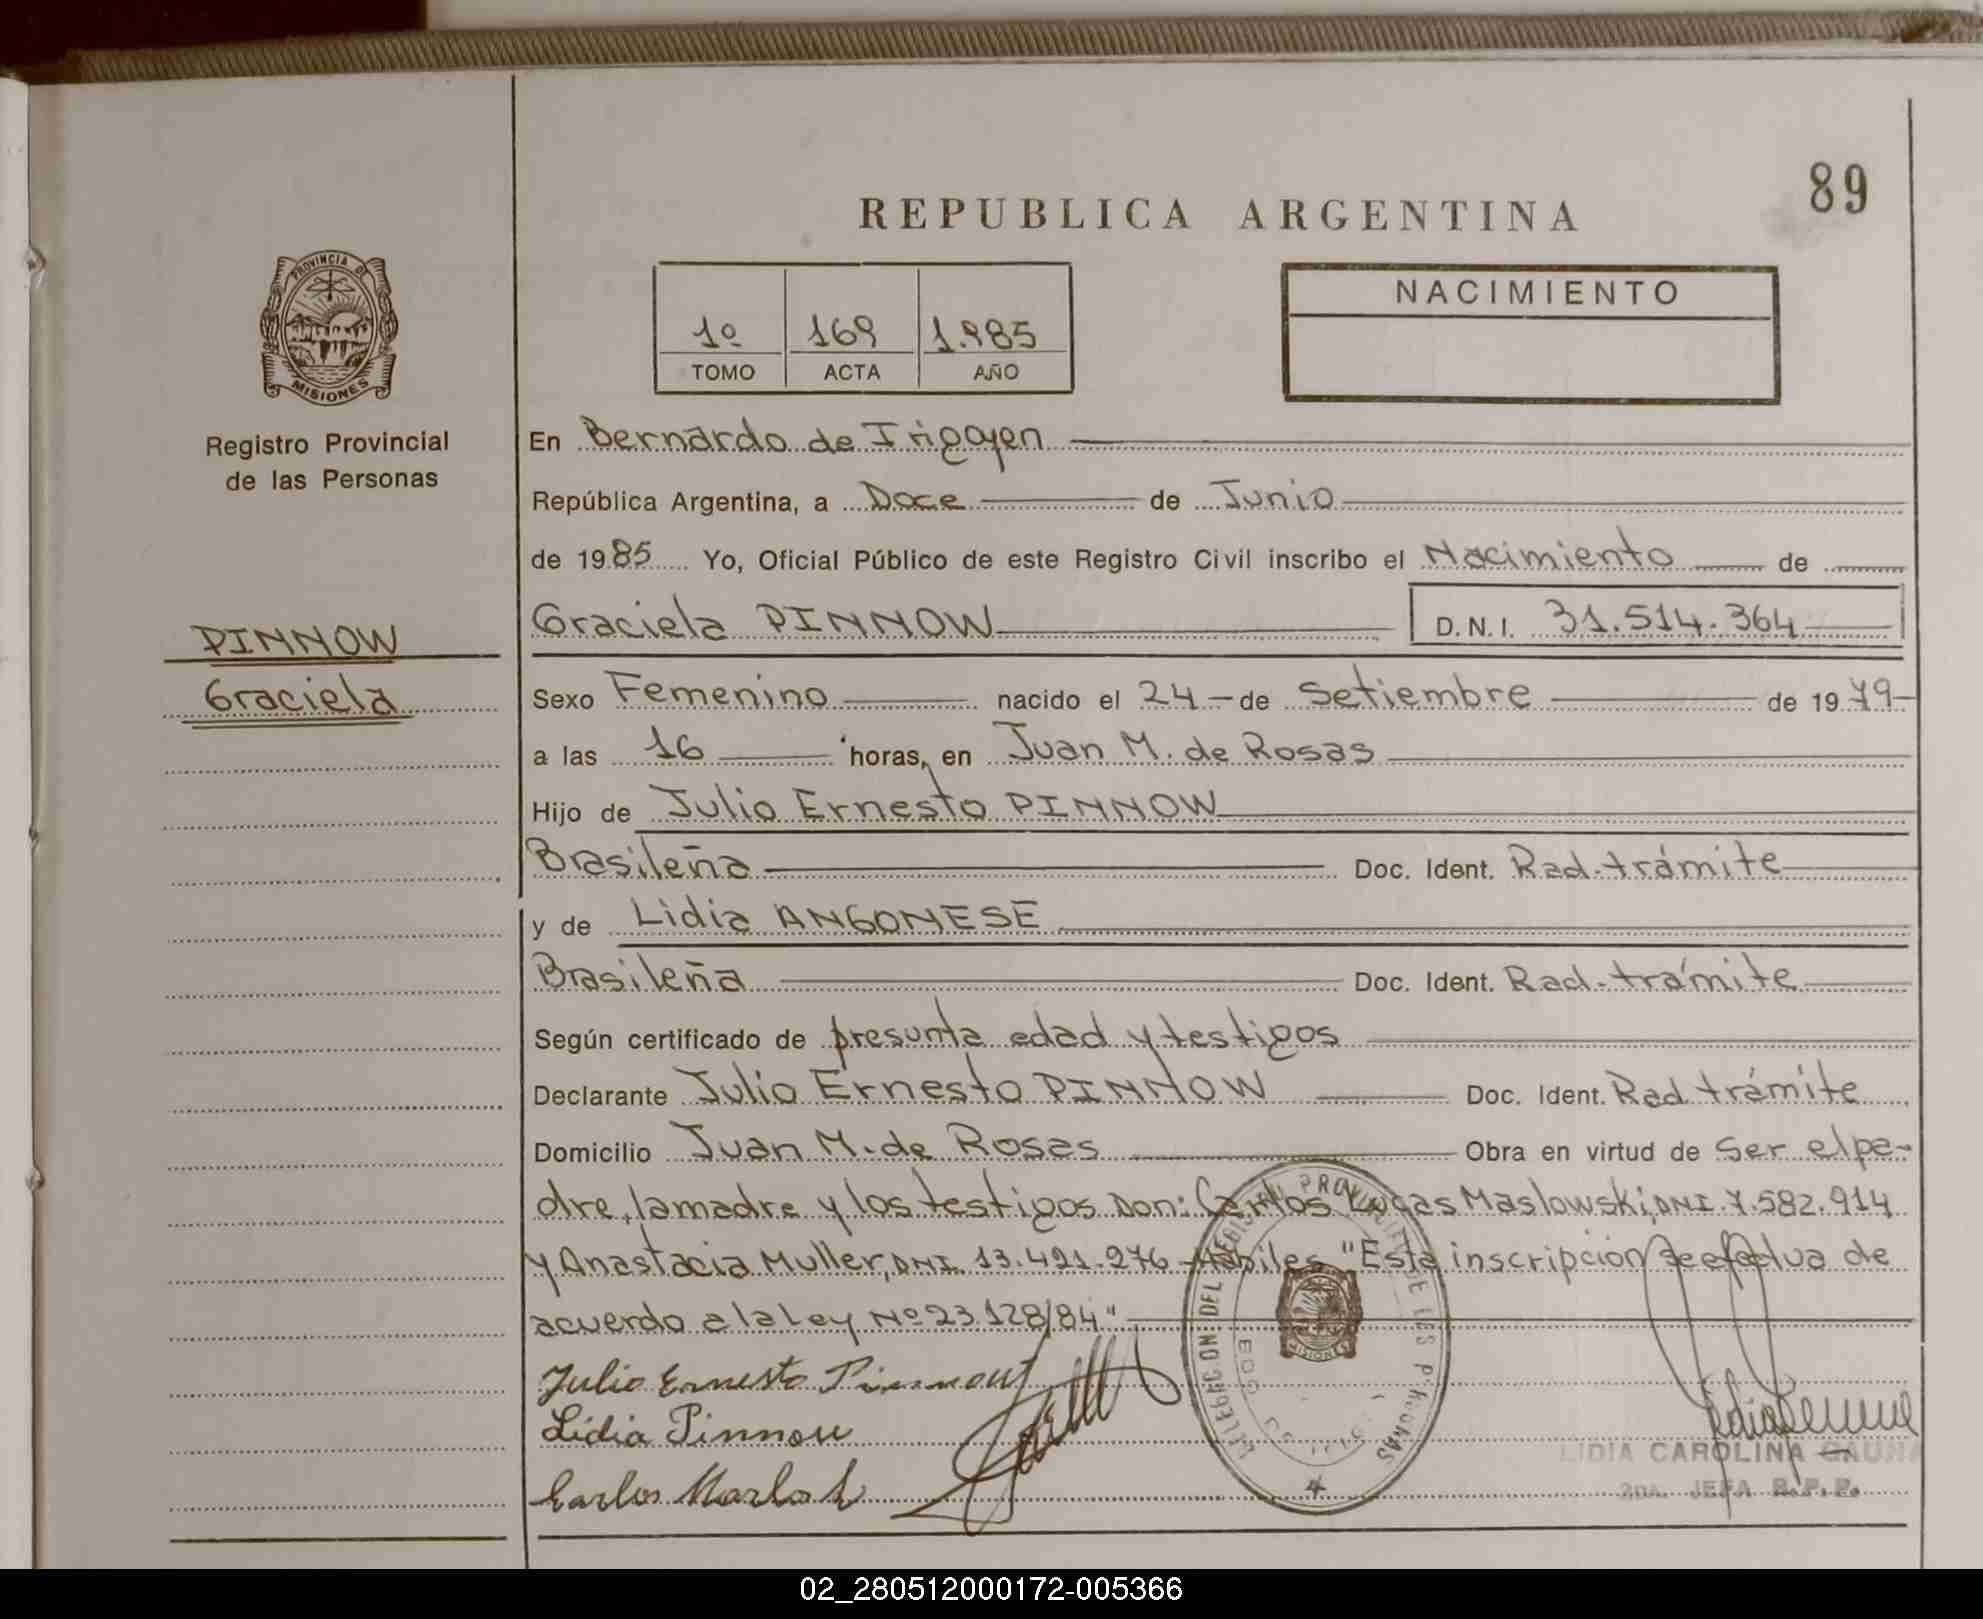 89
REPUBLICA ARGENTINA
PROVINCIA DE
MISIONES
Registro Provincial
de las Personas
1º 169 1.985
TOMO ACTA AÑO
NACIMIENTO
En Bernardo de Irigoyen
República Argentina, a Doce de Junio
de 1985 Yo, Oficial Público de este Registro Civil inscribo el Nacimiento de
PINNOW
Graciela
Graciela PINNOW D.N.I. 31.514.364
Sexo Femenino nacido el 24 de Setiembre de 1979
a las 16 horas, en Juan M. de Rosas
Hijo de Julio Ernesto PINNOW
Brasileña Doc. Ident. Rad. trámite
y de Lidia ANGONESE
Brasileña Doc. Ident. Rad. trámite
Según certificado de presunta edad y testigos
Declarante Julio Ernesto PINNOW Doc. Ident. Rad trámite
Domicilio Juan M. de Rosas Obra en virtud de ser el pa-
dre, la madre y los testigos Don: Carlos Lucas Maslowski, DNI. 7.582.914
y Anastacia Muller, DNI. 13.421.276 Habiles "Esta inscripción se efectua de
acuerdo a la ley Nº 23.128/84"
Julio Ernesto Pinnow
Lidia Pinnow
Carlos
DELEGACION DEL REGISTRO PROVINCIAL DE LAS PERSONAS
MISIONES
LIDIA CAROLINA
JEFA R.P.P.
02_280512000172-005366